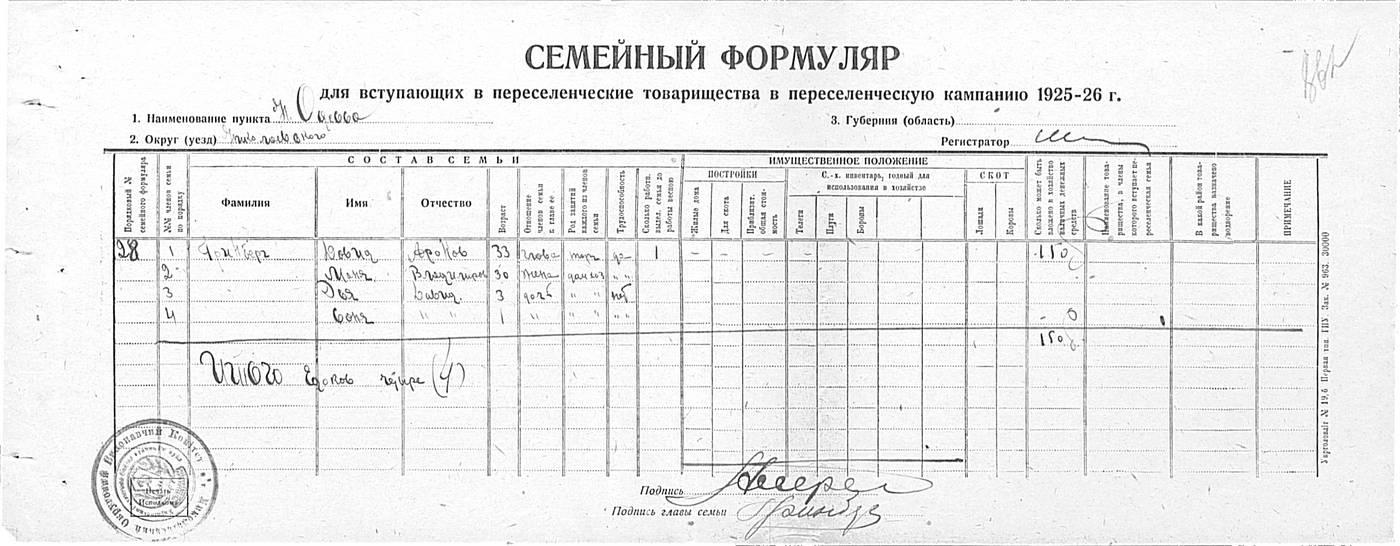 СЕМЕЙНЫЙ ФОРМУЛЯР
для вступающих в переселенческие товарищества в переселенческую кампанию 1925-26 г.
1. Наименование пункта Н. Одесса
3. Губерния (область)
2. Округ (уезд) Николаевского
Регистратор
СОСТАВ СЕМЬИ
ИМУЩЕСТВЕННОЕ ПОЛОЖЕНИЕ
Порядковый № семейного формуляра
№№ членов семьи по порядку
Фамилия
Имя
Отчество
Возраст
Отношение членов семьи к главе ее
Род занятий каждого из членов семьи
Трудоспособность
Сколько работн. выдел. семья до работы весною
ПОСТРОЙКИ
Жилые дома
Для скота
Приблизит. общая стоимость
С.-х. инвентарь, годный для использования в хозяйстве
Телеги
Плуги
Бороны
СКОТ
Лошади
Коровы
Сколько может быть вложено в хозяйство наличных денежных средств
Наименование товарищества, в члены которого вступает переселенческая семья
В какой район товарищества назначено водворение
ПРИМЕЧАНИЕ
28 1 Гринберг Арон 33 глова торг да 1 – – – – – – – – 150
2 Маня Владимиров 30 жена дом хоз " "
3 Давид. 3 дочь " " нет
4 Соня " " 1 " " " " " - 0
150
Итого Едоков четыре (4)
Подпись
Подпись главы семьи
Первая тип. ГПУ Зак. № 963. 30000